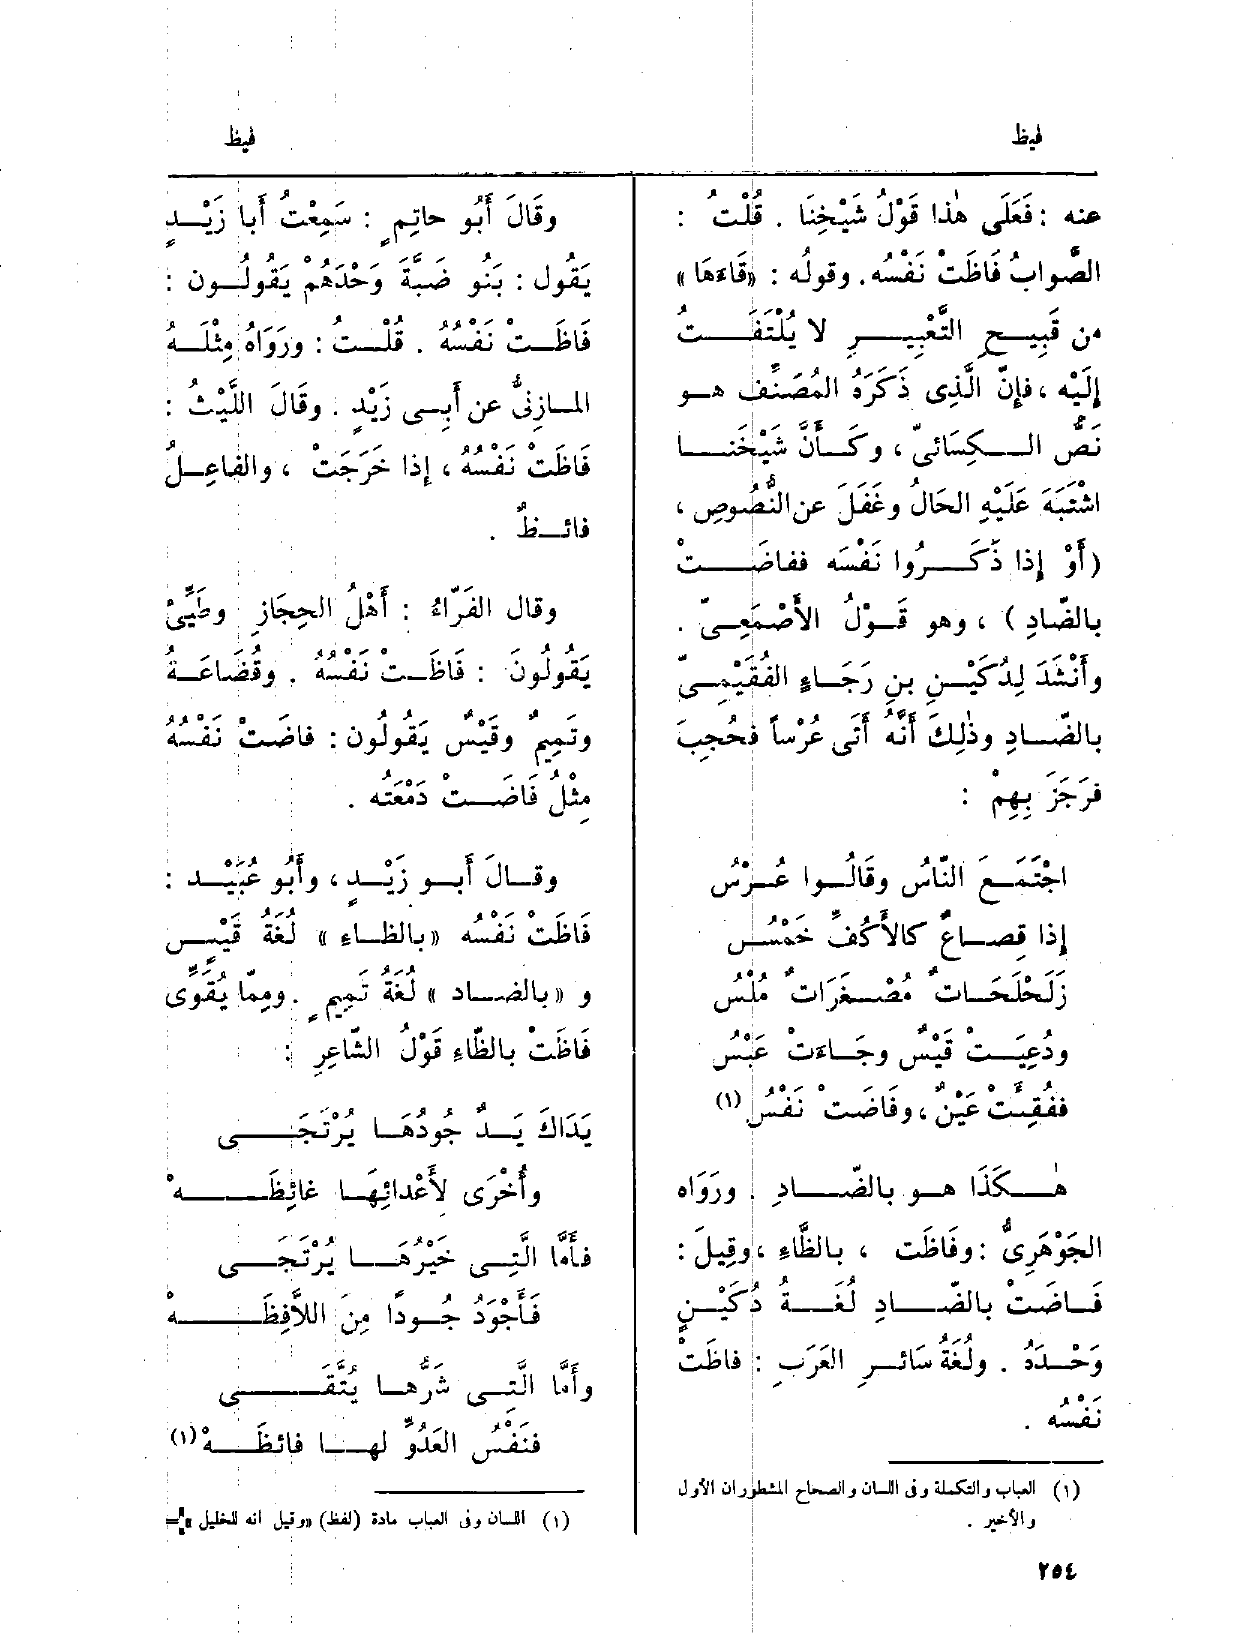 فيظ
فيظ
عنه : فَعَلَى هٰذا قَوْلُ شَيْخِنَا . قُلْتُ :
الصَّوابُ فَاظَتْ نَفْسُه. وقولُه : «قَاءَهَا»
من قَبِيحِ التَّعْبِيرِ لا يُلْتَفَتُ
إِلَيْه ، فإِنّ الَّذِى ذَكَرَهُ المُصَنِّف هو
نَصُّ الكِسَائىّ ، وكَأَنَّ شَيْخَنَا
اشْتَبَهَ عَلَيْهِ الحَالُ وغَفَلَ عن النُّصُوصِ ،
(أَوْ إِذا ذَكَرُوا نَفْسَه ففاضَتْ
بالضّادِ) ، وهو قَوْلُ الأَصْمَعِىّ .
وأَنْشَدَ لِدُكَيْنِ بنِ رَجَاءٍ الفُقَيْمِىّ
بالضّادِ وذٰلِكَ أَنَّهُ أَتَى عُرْساً فحُجِبَ
فرَجَزَ بِهِمْ :
اجْتَمَعَ النّاسُ وقَالُوا عُرْسُ
إِذا قِصاعٌ كالأَكُفِّ خَمْسُ
زَلَحْلَحَاتٌ مُصْغَرَاتٌ مُلْسُ
ودُعِيَتْ قَيْسٌ وجَاءتْ عَبْسُ
ففُقِئَتْ عَيْنٌ ، وفَاضَتْ نَفْسُ (١)
هٰكَذَا هو بالضّادِ . ورَوَاه
الجَوْهَرِىُّ : وفَاظَت ، بالظَّاءِ ، وقِيلَ :
فَاضَتْ بالضّادِ لُغَةُ دُكَيْنٍ
وَحْدَهُ . ولُغَةُ سَائرِ العَرَبِ : فاظَتْ
نَفْسُه .
(١) العباب والتكملة وفى اللسان والصحاح المشطوران الأول
والأخير .
وقَالَ أَبُو حاتِمٍ : سَمِعْتُ أَبا زَيْدٍ
يَقُول : بَنُو ضَبَّةَ وَحْدَهُمْ يَقُولُون :
فَاظَتْ نَفْسُهُ . قُلْتُ : ورَوَاهُ مِثْلَهُ
المازِنىُّ عن أَبِى زَيْدٍ . وقَالَ اللَّيْثُ :
فَاظَتْ نَفْسُهُ ، إِذا خَرَجَتْ ، والفاعِلُ
فائظٌ .
وقال الفَرّاءُ : أَهْلُ الحِجَازِ وطَيِّئٌ
يَقُولُونَ : فَاظَتْ نَفْسُهُ . وقُضَاعَةُ
وتَمِيمٌ وقَيْسٌ يَقُولُون : فاضَتْ نَفْسُهُ
مِثْلُ فَاضَتْ دَمْعَتُه .
وقالَ أَبو زَيْدٍ ، وأَبُو عُبَيْد :
فَاظَتْ نَفْسُه «بالظاءِ» لُغَةُ قَيْسٍ
و «بالضاد» لُغَةُ تَمِيمٍ . ومِمّا يُقَوِّى
فَاظَتْ بالظّاءِ قَوْلُ الشّاعِرِ :
يَدَاكَ يَدٌ جُودُهَا يُرْتَجَى
وأُخْرَى لأَعْدائِهَا غائِظَهْ
فأَمَّا الَّتِى خَيْرُهَا يُرْتَجَى
فَأَجْوَدُ جُوداً مِنَ اللاَّفِظَهْ
وأَمَّا الَّتِى شَرُّها يُتَّقَى
فنَفْسُ العَدُوِّ لها فائظَهْ (١)
(١) اللسان وفى العباب مادة (لفظ) «وقيل انه للخليل =
٢٥٤